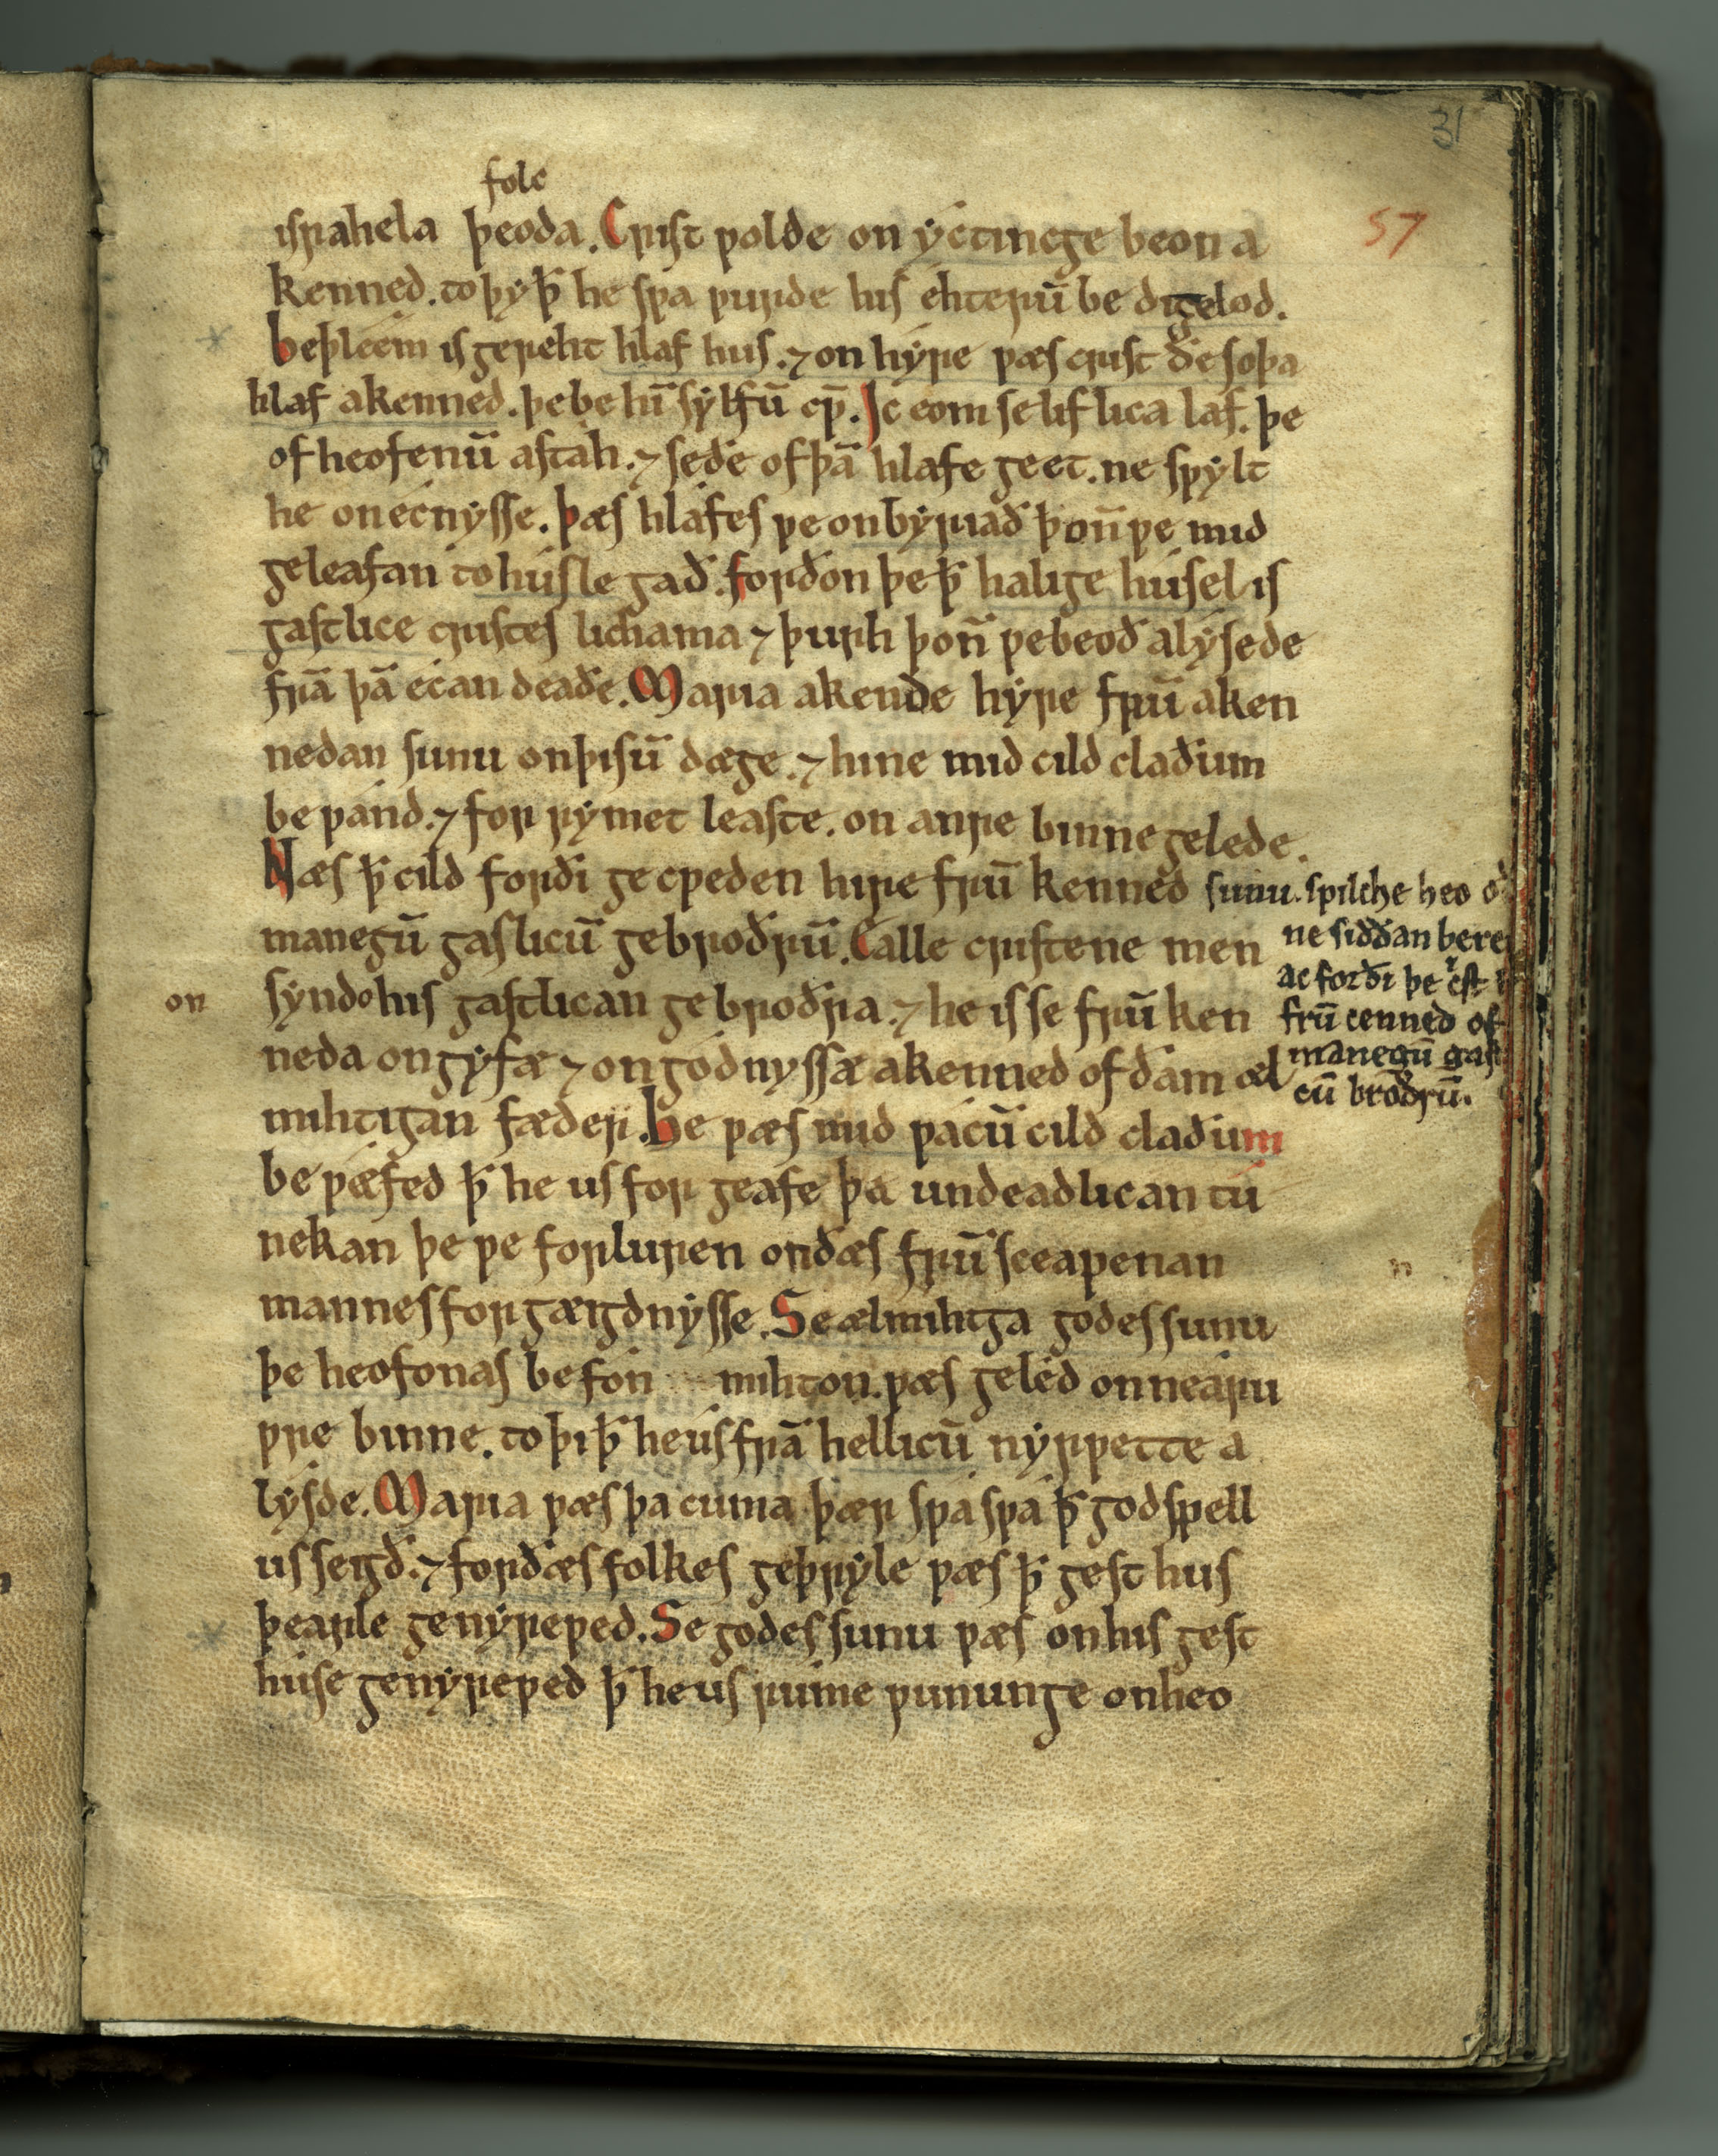 folc
israhela þeoda. Crist ƿolde on ẏtincge beon a
kenned. to þẏ ꝥ he sƿa ƿurde his ehterū be digelod.
beþleem is gereht hlaf hus. ⁊ on hẏre ƿæs crist ðe soþa
hlaf akenned. þe be hī sẏlfū cƿ̄. Ic eom se lif lica laf. þe
of heofenū astah. ⁊ se ðe of þā hlafe geet. ne sƿẏlt
he on ecnẏsse. þæs hlafes ƿe onbẏriað þon̄ ƿe mid
geleafan to husle gað. forðon þe ꝥ halige husel is
gastlice cristes lichama ⁊ þurh þon̄ ƿe beoð alẏsede
frā þā ecan deaðe. Maria akende hẏre frū aken
nedan sunu on þisū dæge. ⁊ hine mid cild claðum
be ƿand. ⁊ for rẏmet leaste. on anre binne gelede.
Næs ꝥ cild forði gecƿeden hire frū kenned sunu. sƿilche heo oð
manegū gaslicū gebroðrū. Ealle cristene men
ne siððan bere
ac forði þe c̄st
on
syndo his gastlican gebroðra. ⁊ he is se frū ken
frū cenned of
neda on gẏfæ ⁊ on godnẏssæ akenned of ðam æl
manegū gast
mihtigan fæder. He ƿæs mid ƿacū cild claðum
cū broðrū.
be ƿæfed ꝥ he us for geafe þa undeadlican tu
nekan þe ƿe forluren on ðæs frū sceapenan
n
mannes forgægdnẏsse. Se ælmihtga godes sunu
þe heofonas befon mihton. ƿæs geled on nearu
ƿre binne. to þi ꝥ he us frā hellicū nẏrƿette a
lẏsde. Maria ƿæs þa cuma þær sƿa sƿa ꝥ godspell
us segð. ⁊ for ðæs folkes geþrẏle ƿæs ꝥ gest hus
þearle genẏreƿed. Se godes sunu ƿæs on his gest
huse genẏreƿed ꝥ he us rume ƿununge on heo
31
57